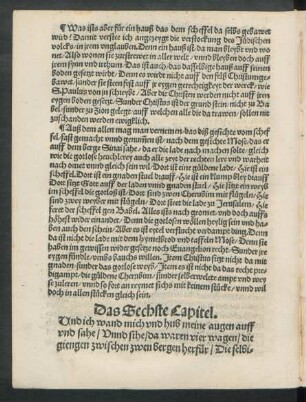 ¶ Was ists aber für ein hauß das dem scheffel da selbs gebawet
wird? Damit verstet ich angezeygt die verstockung des Jüdischen
volcks in jrem vnglauben. Denn ein hauß ist da man bleybt vnd wo
net. Also wonen sie zurstrewet in aller welt, vnnd bleyben doch auff
jrem synn vnd jrrthum. Das ist auch, das daffelb hauß auff seinem
boden gesetzt wirdt, Denn es wirdt nicht auff den felß Christum ge
bawet, sonder sie steen fest auff jr eygen gerechtigkeyt der werck, wie
S. Paulus von jn schreybt, Aber die Christen werden nicht auff jren
eygen boden gesetzt. Sunder Christus ist der grund stein, nicht zu Ba
bel, sunder zu Zion gelegt, auff welchen alle die da trawen, sollen nit
zuschanden werden ewigklich.
¶ Auß dem allen mag man vernemen, das diß gesichte vom schef
fel, fast gemacht vnnd genummen ist, nach dem gesichte Mose, das er
auff dem berge Sinai sahe, da er die lade nach machen solte, gleich
wie die gotlose heuchlerey auch alle zeyt der rechten lere vnd warheit
nach omet vnnd gleich sein wil. Dort ist eine güldene lade, Hie ist ein
scheffel. Dort ist ein gnaden stuel drauff, Hie ist ein klump bley drauff
Dort sitzt Gott auff der laden vnnd gnaden stuel, Hie sitzt ein weyb
im scheffel die gotlosigkeit. Dort sind zwen Cherubim mit flügeln, Hie
sind zwey weyber mit flügeln, Dort steet die lade zu Jerusalem, Hie
feret der scheffel gen Babel. Alles ists nach geomet, vnd doch auffs
höhest wider einander, Denn die gotlosen wöllen heylig sein vnd ha
ben auch den schein, Aber es ist eytel verflucht verdampt ding, Denn
da ist nicht die lade mit dem hymelbrod vnd tafeln Mose, Denn sie
haben im gewissen wider gesetze noch Euangelion recht. Sunder jre
eygen fündle, vmbs bauchs willen. Item Christus sitzt nicht da mit
gnaden, sunder das gotlose weyb, Item es ist nicht da das recht pre
digampt, die güldene Cherubim, sunder selberwelete ampt vnd wey
se zuleren, vnnd so fort an reymet sichs mit keinem stücke, vnnd wil
doch in allen stücken gleich sein.
Das Sechste Capitel.
Und ich wand mich vnd hub meine augen auff
vnd sahe, Vnnd sihe, da waren vier wagen, die
giengen zwischen zwen bergen herfür, Die selbi-